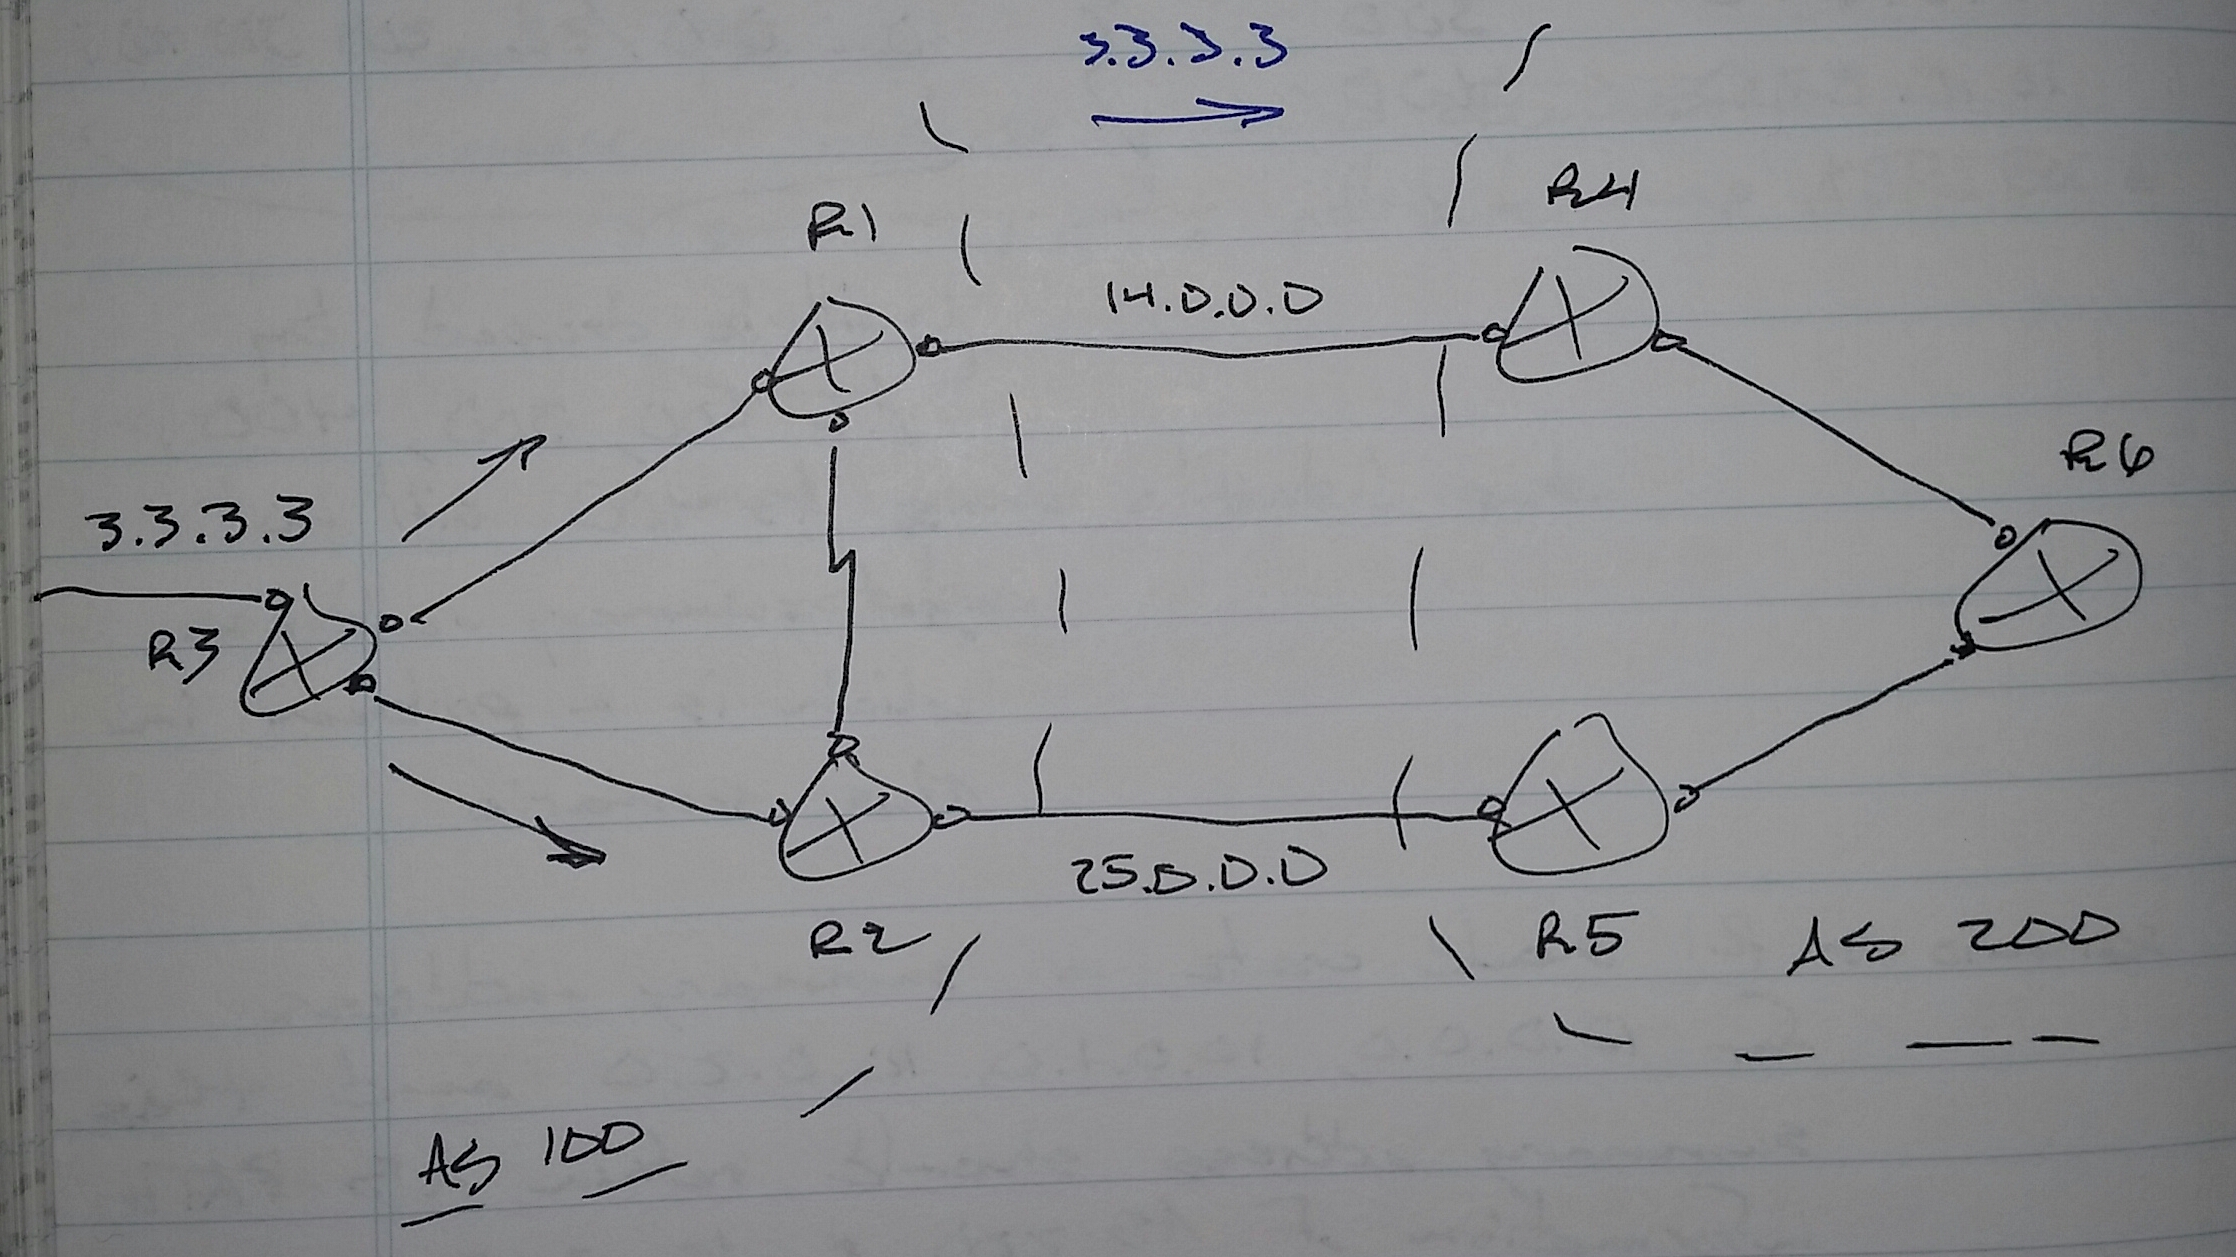 3.3.3.3
R1
R4
14.0.0.0
R6
3.3.3.3
R3
25.0.0.0
R2
R5
AS 200
AS 100